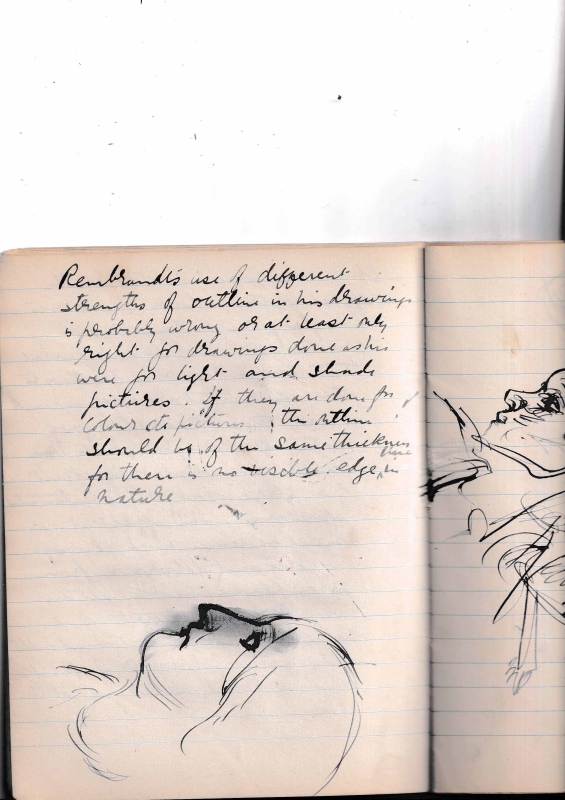 Rembrandt's use of different
strengths of outline in his drawings
is probably wrong or at least only
right for drawings done as his
were for light and shade
pictures. If they are done for
colour pictures the outline
should be of the same thickness
for there is no visible edge, line in
nature